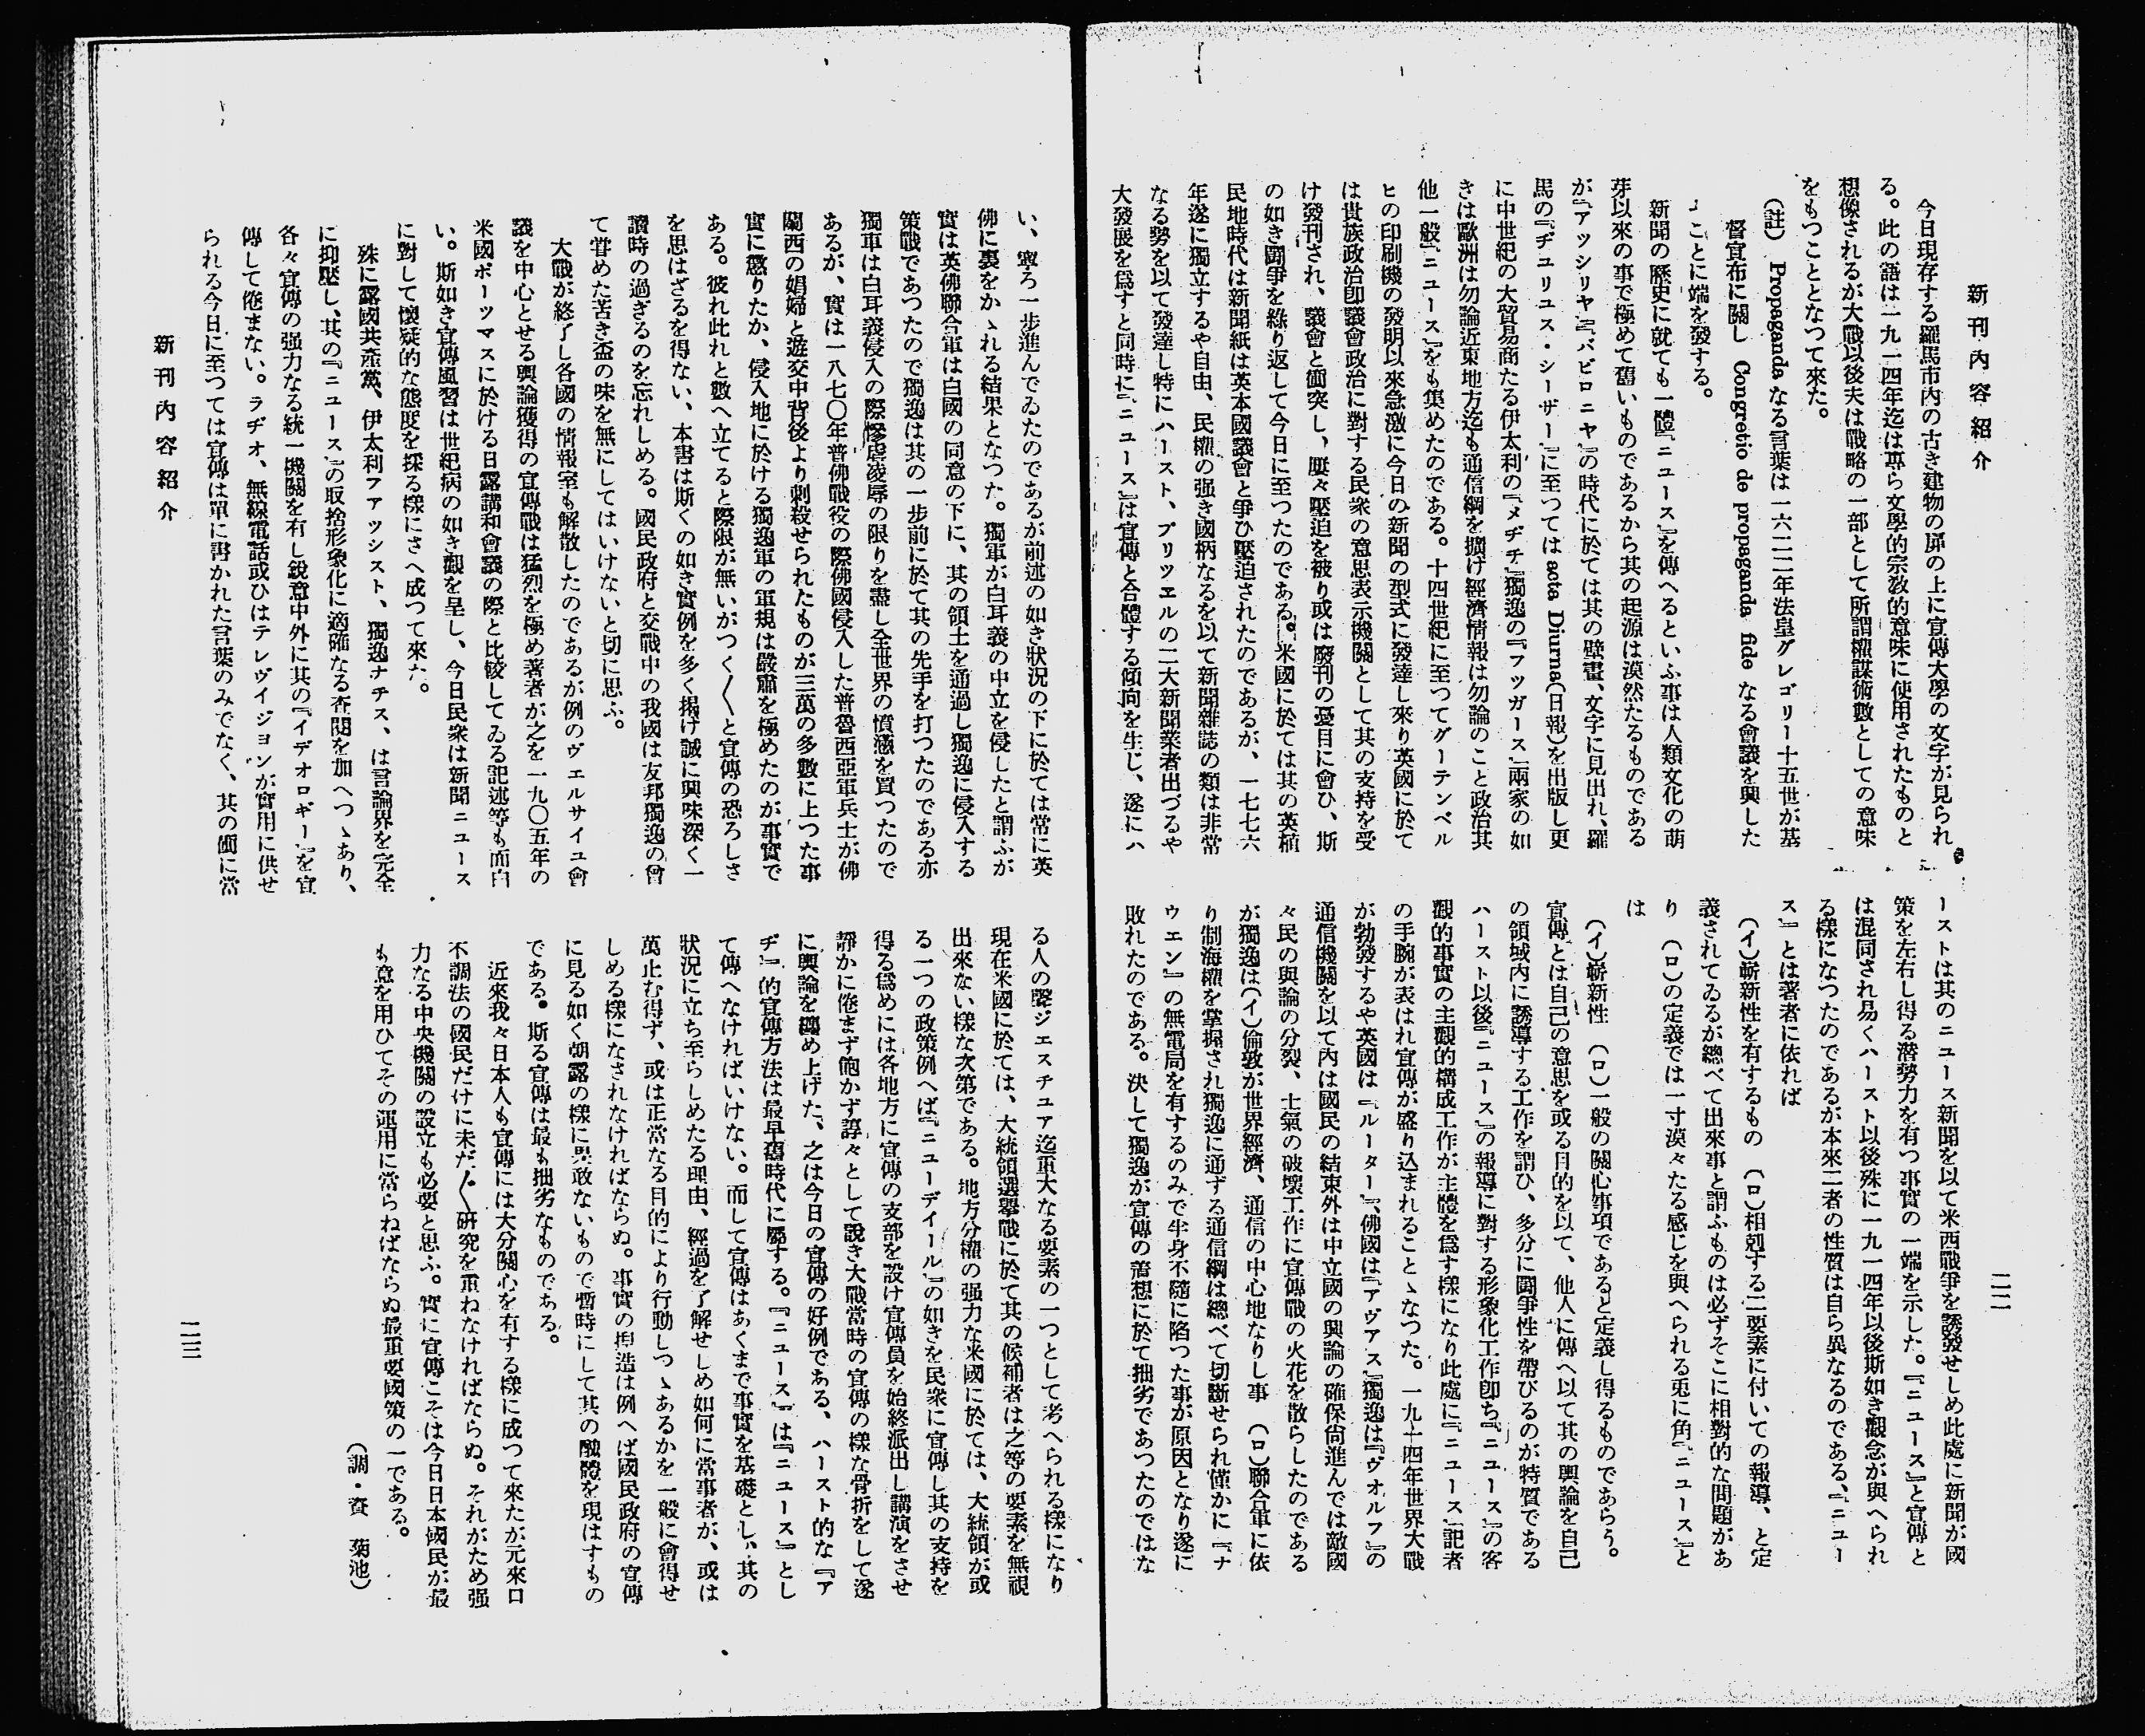 新刊內容紹介
二二
今日現存する羅馬市內の古き建物の扉の上に宣傳大學の文字が見られ
る。此の語は一九一四年迄は專ら文學的宗敎的意味に使用されたものと
想像されるが大戰以後夫は戰略の一部として所謂權謀術數としての意味
をもつこととなつて來た。
(註) Propaganda なる言葉は一六二二年法皇グレゴリー十五世が基
督宣布に關し Congretio de propaganda fide なる會議を興した
ことに端を發する。
新聞の歷史に就ても一體『ニュース』を傳へるといふ事は人類文化の萠
芽以來の事で極めて舊いものであるから其の起源は漠然たるものである
が『アッシリヤ』『バビロニヤ』の時代に於ては其の壁畫、文字に見出れ、羅
馬の『ヂユリユス・シーザー』に至つては acta Diurna(日報)を出版し更
に中世紀の大貿易商たる伊太利の『メヂチ』獨逸の『フッガース』兩家の如
きは歐洲は勿論近東地方迄も通信綱を擴げ經濟情報は勿論のこと政治其
他一般『ニュース』をも集めたのである。十四世紀に至つてグーテンベル
ヒの印刷機の發明以來急激に今日の新聞の型式に發達し來り英國に於て
は貴族政治卽議會政治に對する民衆の意思表示機關として其の支持を受
け發刊され、議會と衝突し、屢々壓迫を被り或は廢刊の憂目に會ひ、斯
の如き鬪爭を繰り返して今日に至つたのである。米國に於ては其の英植
民地時代は新聞紙は英本國議會と爭ひ壓迫されたのであるが、一七七六
年遂に獨立するや自由、民權の强き國柄なるを以て新聞雜誌の類は非常
なる勢を以て發達し特にハースト、プリツエルの二大新聞業者出づるや
大發展を爲すと同時に『ニュース』は宣傳と合體する傾向を生じ、遂にハ
ーストは其のニュース新聞を以て米西戰爭を誘發せしめ此處に新聞が國
策を左右し得る潜勢力を有つ事實の一端を示した。『ニュース』と宣傳と
は混同され易くハースト以後殊に一九一四年以後斯如き觀念が與へられ
る樣になつたのであるが本來二者の性質は自ら異なるのである、『ニュー
ス』とは著者に依れば
(イ)嶄新性を有するもの (ロ)相剋する二要素に付いての報導、と定
義されてゐるが總べて出來事と謂ふものは必ずそこに相對的な問題があ
り (ロ)の定義では一寸漠々たる感じを與へられる兎に角『ニュース』と
は
(イ)嶄新性 (ロ)一般の關心事項であると定義し得るものであらう。
宣傳とは自己の意思を或る目的を以て、他人に傳へ以て其の輿論を自己
の領域內に誘導する工作を謂ひ、多分に鬪爭性を帶びるのが特質である
ハースト以後『ニュース』の報導に對する形象化工作卽ち『ニュース』の客
觀的事實の主觀的構成工作が主體を爲す樣になり此處に『ニュース』記者
の手腕が表はれ宣傳が盛り込まれることゝなつた。一九一四年世界大戰
が勃發するや英國は『ルーター』、佛國は『アヴァス』獨逸は『ヴオルフ』の
通信機關を以て內は國民の結束外は中立國の輿論の確保尙進んでは敵國
々民の輿論の分裂、士氣の破壞工作に宣傳戰の火花を散らしたのである
が獨逸は(イ)倫敦が世界經濟、通信の中心地なりし事 (ロ)聯合軍に依
り制海權を掌握され獨逸に通ずる通信綱は總べて切斷せられ僅かに『ナ
ウエン』の無電局を有するのみで半身不隨に陷つた事が原因となり遂に
敗れたのである。決して獨逸が宣傳の着想に於て拙劣であつたのではな
い、寧ろ一步進んでゐたのであるが前述の如き狀況の下に於ては常に英
佛に裏をかゝれる結果となつた。獨軍が白耳義の中立を侵したと謂ふが
實は英佛聯合軍は白國の同意の下に、其の領土を通過し獨逸に侵入する
策戰であつたので獨逸は其の一步前に於て其の先手を打つたのである亦
獨軍は白耳義侵入の際慘虐凌辱の限りを盡し全世界の憤懣を買つたので
あるが、實は一八七〇年普佛戰役の際佛國侵入した普魯西亞軍兵士が佛
蘭西の娼婦と遊交中背後より刺殺せられたものが三萬の多數に上つた事
實に懲りたか、侵入地に於ける獨逸軍の軍規は嚴肅を極めたのが事實で
ある。彼れ此れと數へ立てると際限が無いがつく〱と宣傳の恐ろしさ
を思はざるを得ない、本書は斯くの如き實例を多く揭け誠に興味深く一
讀時の過ぎるのを忘れしめる。國民政府と交戰中の我國は友邦獨逸の曾
て甞めた苦き盃の味を無にしてはいけないと切に思ふ。
大戰が終了し各國の情報室も解散したのであるが例のヴエルサイユ會
議を中心とせる輿論獲得の宣傳戰は猛烈を極め著者が之を一九〇五年の
米國ポーツマスに於ける日露講和會議の際と比較してゐる記述等も面白
い。斯如き宣傳風習は世紀病の如き觀を呈し、今日民衆は新聞ニュース
に對して懷疑的な態度を採る樣にさへ成つて來た。
殊に露國共產黨、伊太利ファッシスト、獨逸ナチス、は言論界を完全
に抑壓し、其の『ニュース』の取捨形象化に適確なる査閱を加へつゝあり、
各々宣傳の强力なる統一機關を有し銳意中外に其の『イデオロギー』を宣
傳して倦まない。ラヂオ、無線電話或ひはテレヴイジョンが實用に供せ
られる今日に至つては宣傳は單に書かれた言葉のみでなく、其の衝に當
る人の聲ジエスチユア迄重大なる要素の一つとして考へられる樣になり
現在米國に於ては、大統領選擧戰に於て其の候補者は之等の要素を無視
出來ない樣な次第である。地方分權の强力な米國に於ては、大統領が或
る一つの政策例へば『ニューデイール』の如きを民衆に宣傳し其の支持を
得る爲めには各地方に宣傳の支部を設け宣傳員を始終派出し講演をさせ
靜かに倦まず飽かず諄々として說き大戰當時の宣傳の樣な骨折をして遂
に輿論を纏め上げた、之は今日の宣傳の好例である、ハースト的な『ア
ヂ』的宣傳方法は最早舊時代に屬する。『ニュース』は『ニュース』とし
て傳へなければいけない。而して宣傳はあくまで事實を基礎とし、其の
狀況に立ち至らしめたる理由、經過を了解せしめ如何に當事者が、或は
萬止む得ず、或は正常なる目的により行動しつゝあるかを一般に會得せ
しめる樣になされなければならぬ。事實の捏造は例へば國民政府の宣傳
に見る如く朝露の樣に果敢ないもので暫時にして其の醜體を現はすもの
である。斯る宣傳は最も拙劣なものである。
近來我々日本人も宣傳には大分關心を有する樣に成つて來たが元來口
不調法の國民だけに未だ〱硏究を重ねなければならぬ。それがため强
力なる中央機關の設立も必要と思ふ。實に宣傳こそは今日日本國民が最
も意を用ひてその運用に當らねばならぬ最重要國策の一である。
(調・資 菊池)
新刊內容紹介
二三